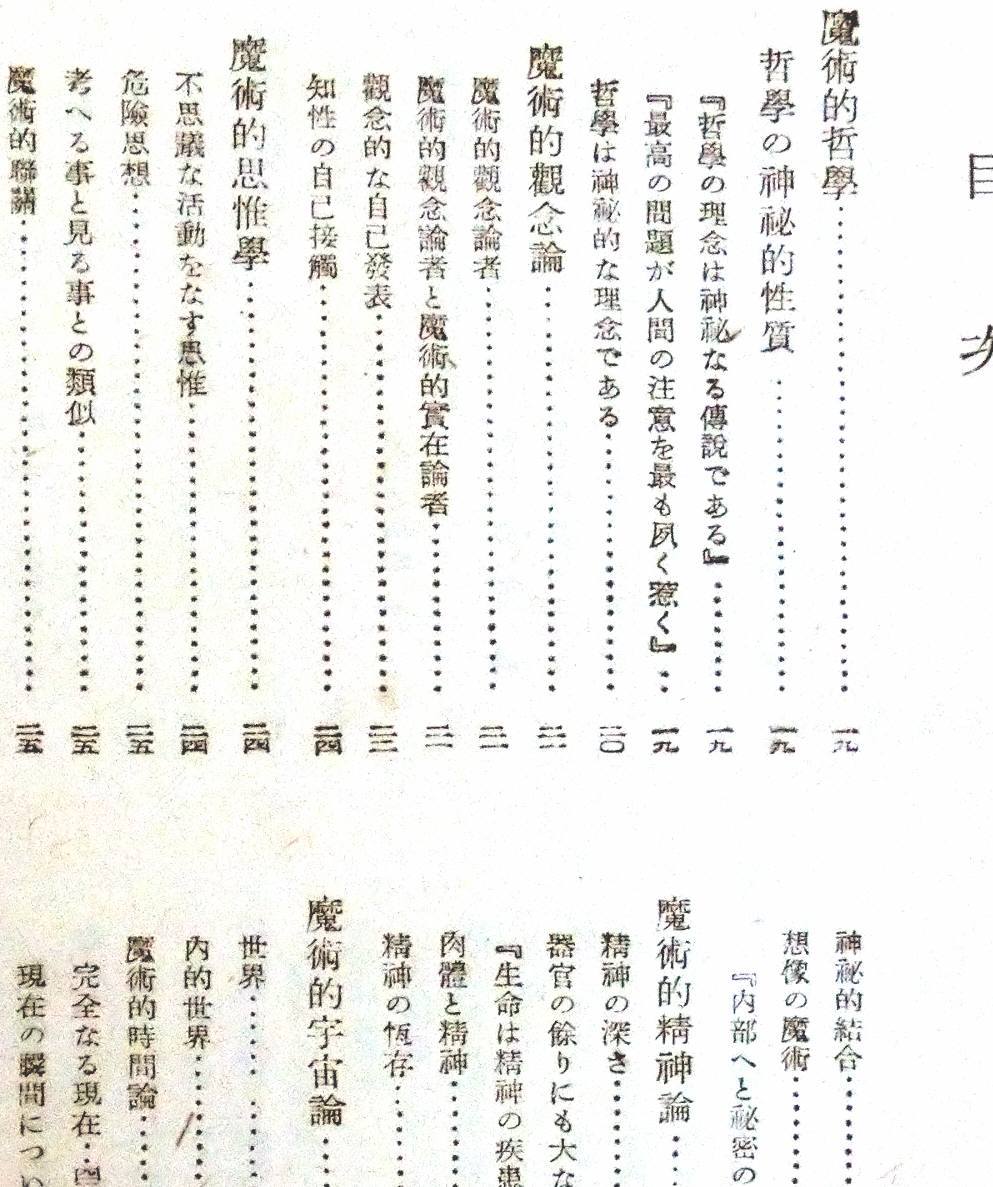 目次
魔術的哲學……一九
哲學の神祕的性質……一九
『哲學の理念は神祕なる傳說である』……一九
『最高の問題が人間の注意を最も夙く惹く』……一九
哲學は神祕的な理念である……二〇
魔術的觀念論……二一
魔術的觀念論者……二一
魔術的觀念論者と魔術的實在論者……二一
觀念的な自己發表……二三
知性の自己接觸……二四
魔術的思惟學……二四
不思議な活動をなす思惟……二四
危險思想……二五
考へる事と見る事との類似……二五
魔術的聯關……二五
神祕的結合……
想像の魔術……
『內部へと祕密の
魔術的精神論……
精神の深さ……
器官の餘りにも大な
『生命は精神の疾患
肉體と精神……
精神の恆存……
魔術的宇宙論……
世界……
內的世界……
魔術的時間論……
完全なる現在……
現在の瞬間につい